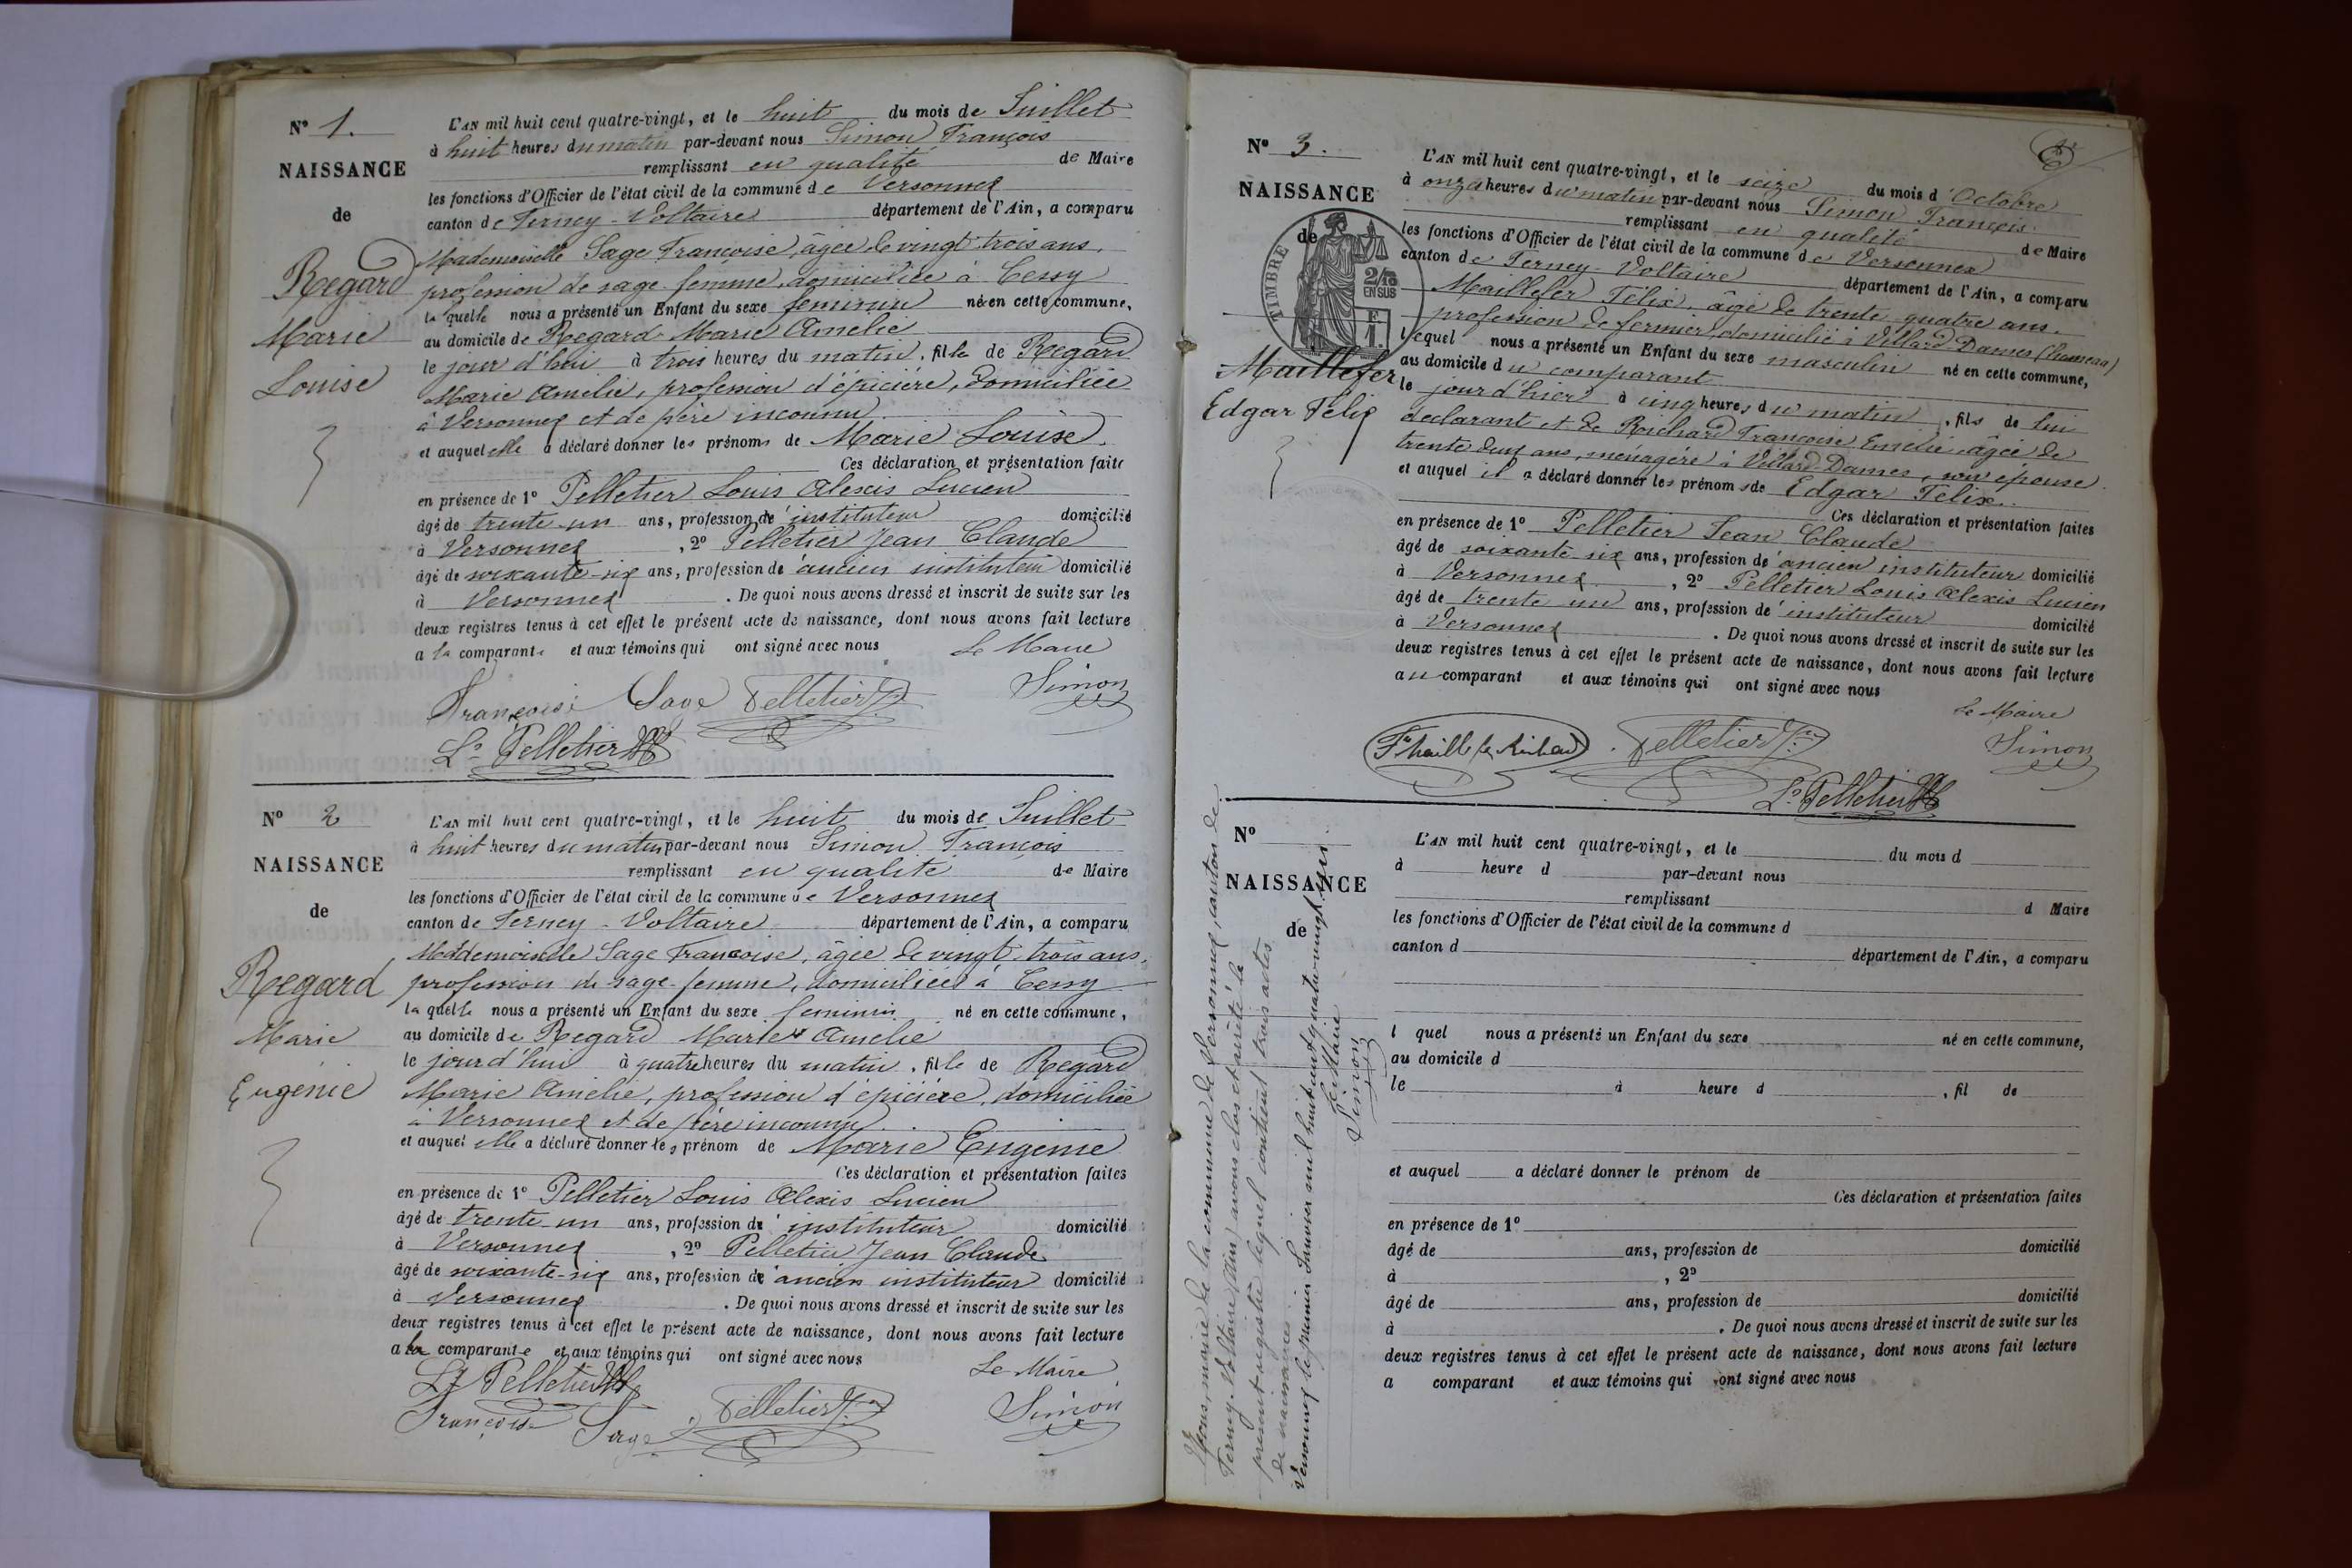 N° 1.
NAISSANCE
de
Regard
Marie
Louise
L'AN mil huit cent quatre-vingt, et le huit du mois de Juillet
à huit heures du matin par-devant nous Simon François
remplissant en qualité de Maire
les fonctions d'Officier de l'état civil de la commune de Versonnex
canton de Ferney-Voltaire département de l'Ain, a comparu
Mademoiselle Sage Françoise, âgée de vingt trois ans,
profession de sage femme, domiciliée à Cessy
laquelle nous a présenté un Enfant du sexe feminin né en cette commune,
au domicile de Regard Marie Amelie
le jour d'hui à trois heures du matin, fille de Regard
Marie Amelie, profession d'épicière, domiciliée
à Versonnex et de père inconnu.
et auquel elle a déclaré donner les prénoms de Marie Louise.
Ces déclaration et présentation faite
en présence de 1° Pelletier Louis Alexis Lucien
âgé de trente-un ans, profession d'instituteur domicilié
à Versonnex, 2° Pelletier Jean Claude
âgé de soixante-six ans, profession d'ancien instituteur domicilié
à Versonnex. De quoi nous avons dressé et inscrit de suite sur les
deux registres tenus à cet effet le présent acte de naissance, dont nous avons fait lecture
a la comparante et aux témoins qui ont signé avec nous Le Maire
Françoise Sage Pelletier Simon
Ls Pelletier
N° 2
NAISSANCE
de
Regard
Marie
Eugénie
L'AN mil huit cent quatre-vingt, et le huit du mois de Juillet
à huit heures du matin par-devant nous Simon François
remplissant en qualité de Maire
les fonctions d'Officier de l'état civil de la commune de Versonnex
canton de Ferney-Voltaire département de l'Ain, a comparu
Mademoiselle Sage Françoise, âgée de vingt trois ans,
profession de sage femme, domiciliée à Cessy
laquelle nous a présenté un Enfant du sexe feminin né en cette commune,
au domicile de Regard Marie Amelie
le jour d'hui à quatre heures du matin, fille de Regard
Marie Amelie, profession d'épicière, domiciliée
à Versonnex et de père inconnu.
et auquel elle a déclaré donner les prénom de Marie Eugenie
Ces déclaration et présentation faites
en présence de 1° Pelletier Louis Alexis Lucien
âgé de trente-un ans, profession d'instituteur domicilié
à Versonnex, 2° Pelletier Jean Claude
âgé de soixante-six ans, profession d'ancien instituteur domicilié
à Versonnex. De quoi nous avons dressé et inscrit de suite sur les
deux registres tenus à cet effet le présent acte de naissance, dont nous avons fait lecture
a la comparante et aux témoins qui ont signé avec nous
Le Maire
Ls Pelletier
Françoise Sage Pelletier Simon
N° 3.
NAISSANCE
de
TIMBRE
2/10
EN SUS
F
1.
Maillefer
Edgar Félix
L'AN mil huit cent quatre-vingt, et le seize du mois d'Octobre
à onze heures du matin par-devant nous Simon François
remplissant en qualité de Maire
les fonctions d'Officier de l'état civil de la commune de Versonnex
canton de Ferney-Voltaire département de l'Ain, a comparu
Maillefer Félix, âgé de trente quatre ans.
profession de fermier, domicilié à Villard-Dames
lequel nous a présenté un Enfant du sexe masculin né en cette commune,
au domicile du comparant
le jour d'hier à cinq heures du matin, fils de lui
declarant et de Rochard Françoise Emelie âgée de
trente deux ans, menagère à Villard-Dames, son épouse.
et auquel il a déclaré donner les prénoms de Edgar Félix.
Ces déclaration et présentation faites
en présence de 1° Pelletier Jean Claude
âgé de soixante-six ans, profession d'ancien instituteur domicilié
à Versonnex, 2° Pelletier Louis Alexis Lucien
âgé de trente un ans, profession d'instituteur domicilié
à Versonnex. De quoi nous avons dressé et inscrit de suite sur les
deux registres tenus à cet effet le présent acte de naissance, dont nous avons fait lecture
au comparant et aux témoins qui ont signé avec nous
Le Maire
Pelletier Simon
Ls Pelletier
N°
NAISSANCE
de
L'AN mil huit cent quatre-vingt, et le du mois d
à heure d par-devant nous
remplissant d Maire
les fonctions d'Officier de l'état civil de la commune d
canton d département de l'Ain, a comparu
l quel nous a présenté un Enfant du sexe né en cette commune,
au domicile d
le à heure d , fil de
et auquel a déclaré donner le prénom de
Ces déclaration et présentation faites
en présence de 1°
âgé de ans, profession de domicilié
à , 2°
âgé de ans, profession de domicilié
à . De quoi nous avons dressé et inscrit de suite sur les
deux registres tenus à cet effet le présent acte de naissance, dont nous avons fait lecture
a comparant et aux témoins qui ont signé avec nous
Nous, maire de la commune de Versonnex, canton de
Ferney-Voltaire (Ain) avons clos et arrêté le
présent registre lequel contient trois actes
de naissances.
Versonnex le premier Janvier mil huit cent quatre-vingt-un.
Le Maire
Simon